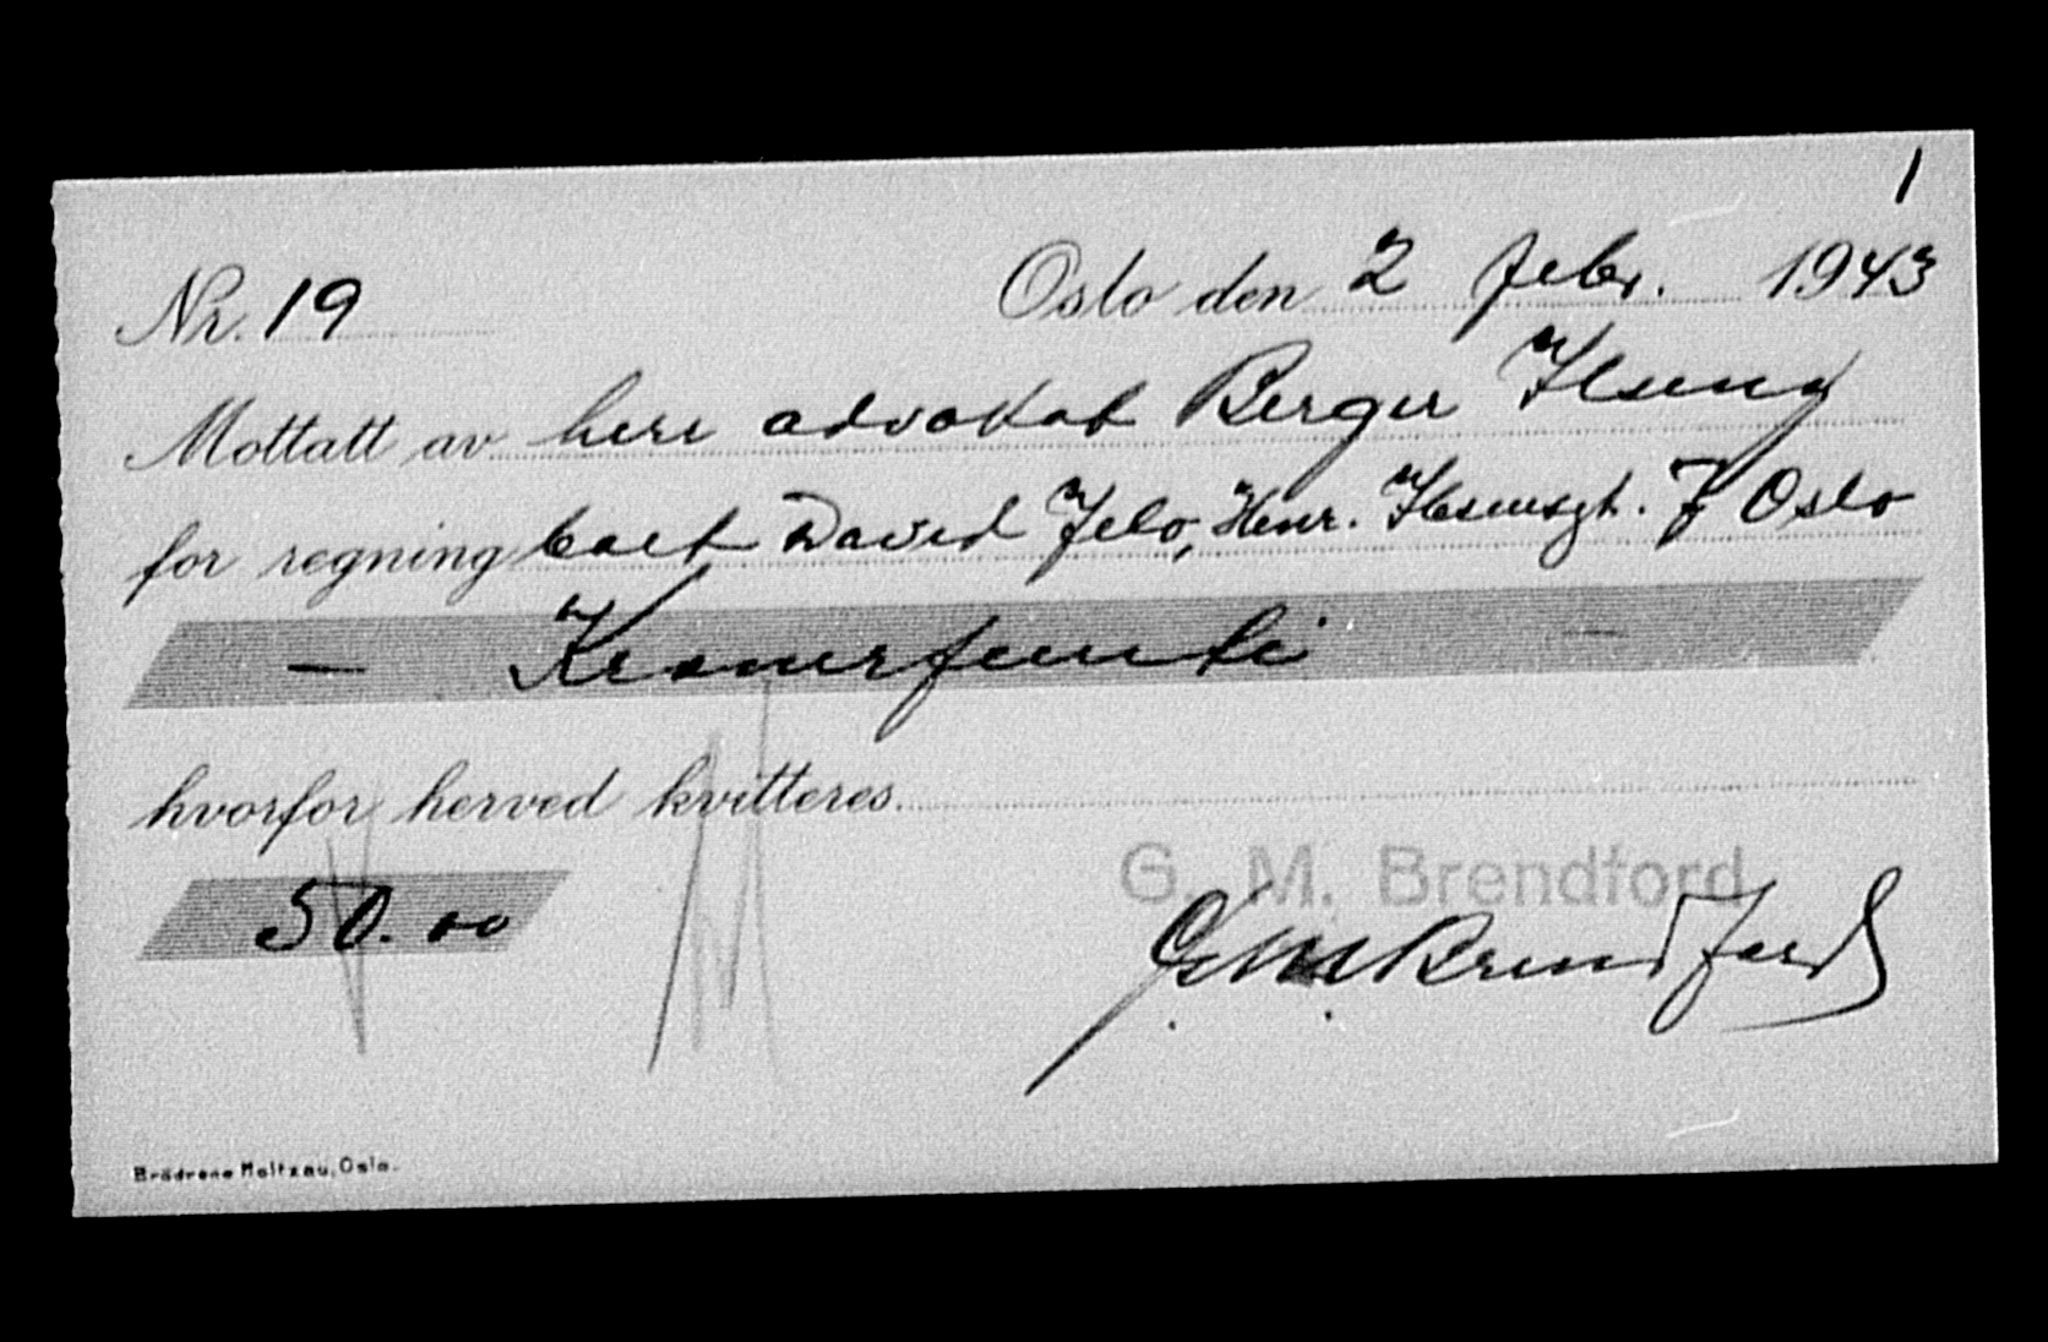 1
Nr. 19 Oslo den 2 febr. 1943
Mottatt av herr advokat Berger
for regning David Jelo, Henr. Ibsensgt. 7 Oslo
— Kronerfemti —
hvorfor herved kvitteres
50.00
G. M. Brendford
G. M. Brendford
Brödrene Moltzau, Oslo.